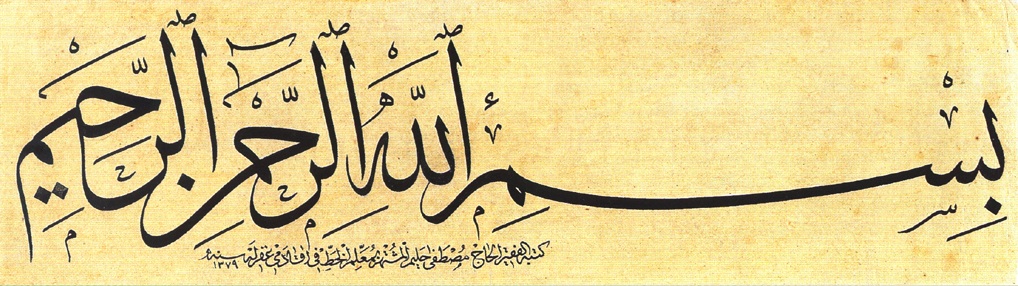 بِسْمِ اللَّهِ الرَّحْمٰنِ الرَّحِيمِ
كتبه الفقير الحاج مصطفى حليم المشتهر بمعلم الخط في اقادمي غفر له سنه ١٣٧٩